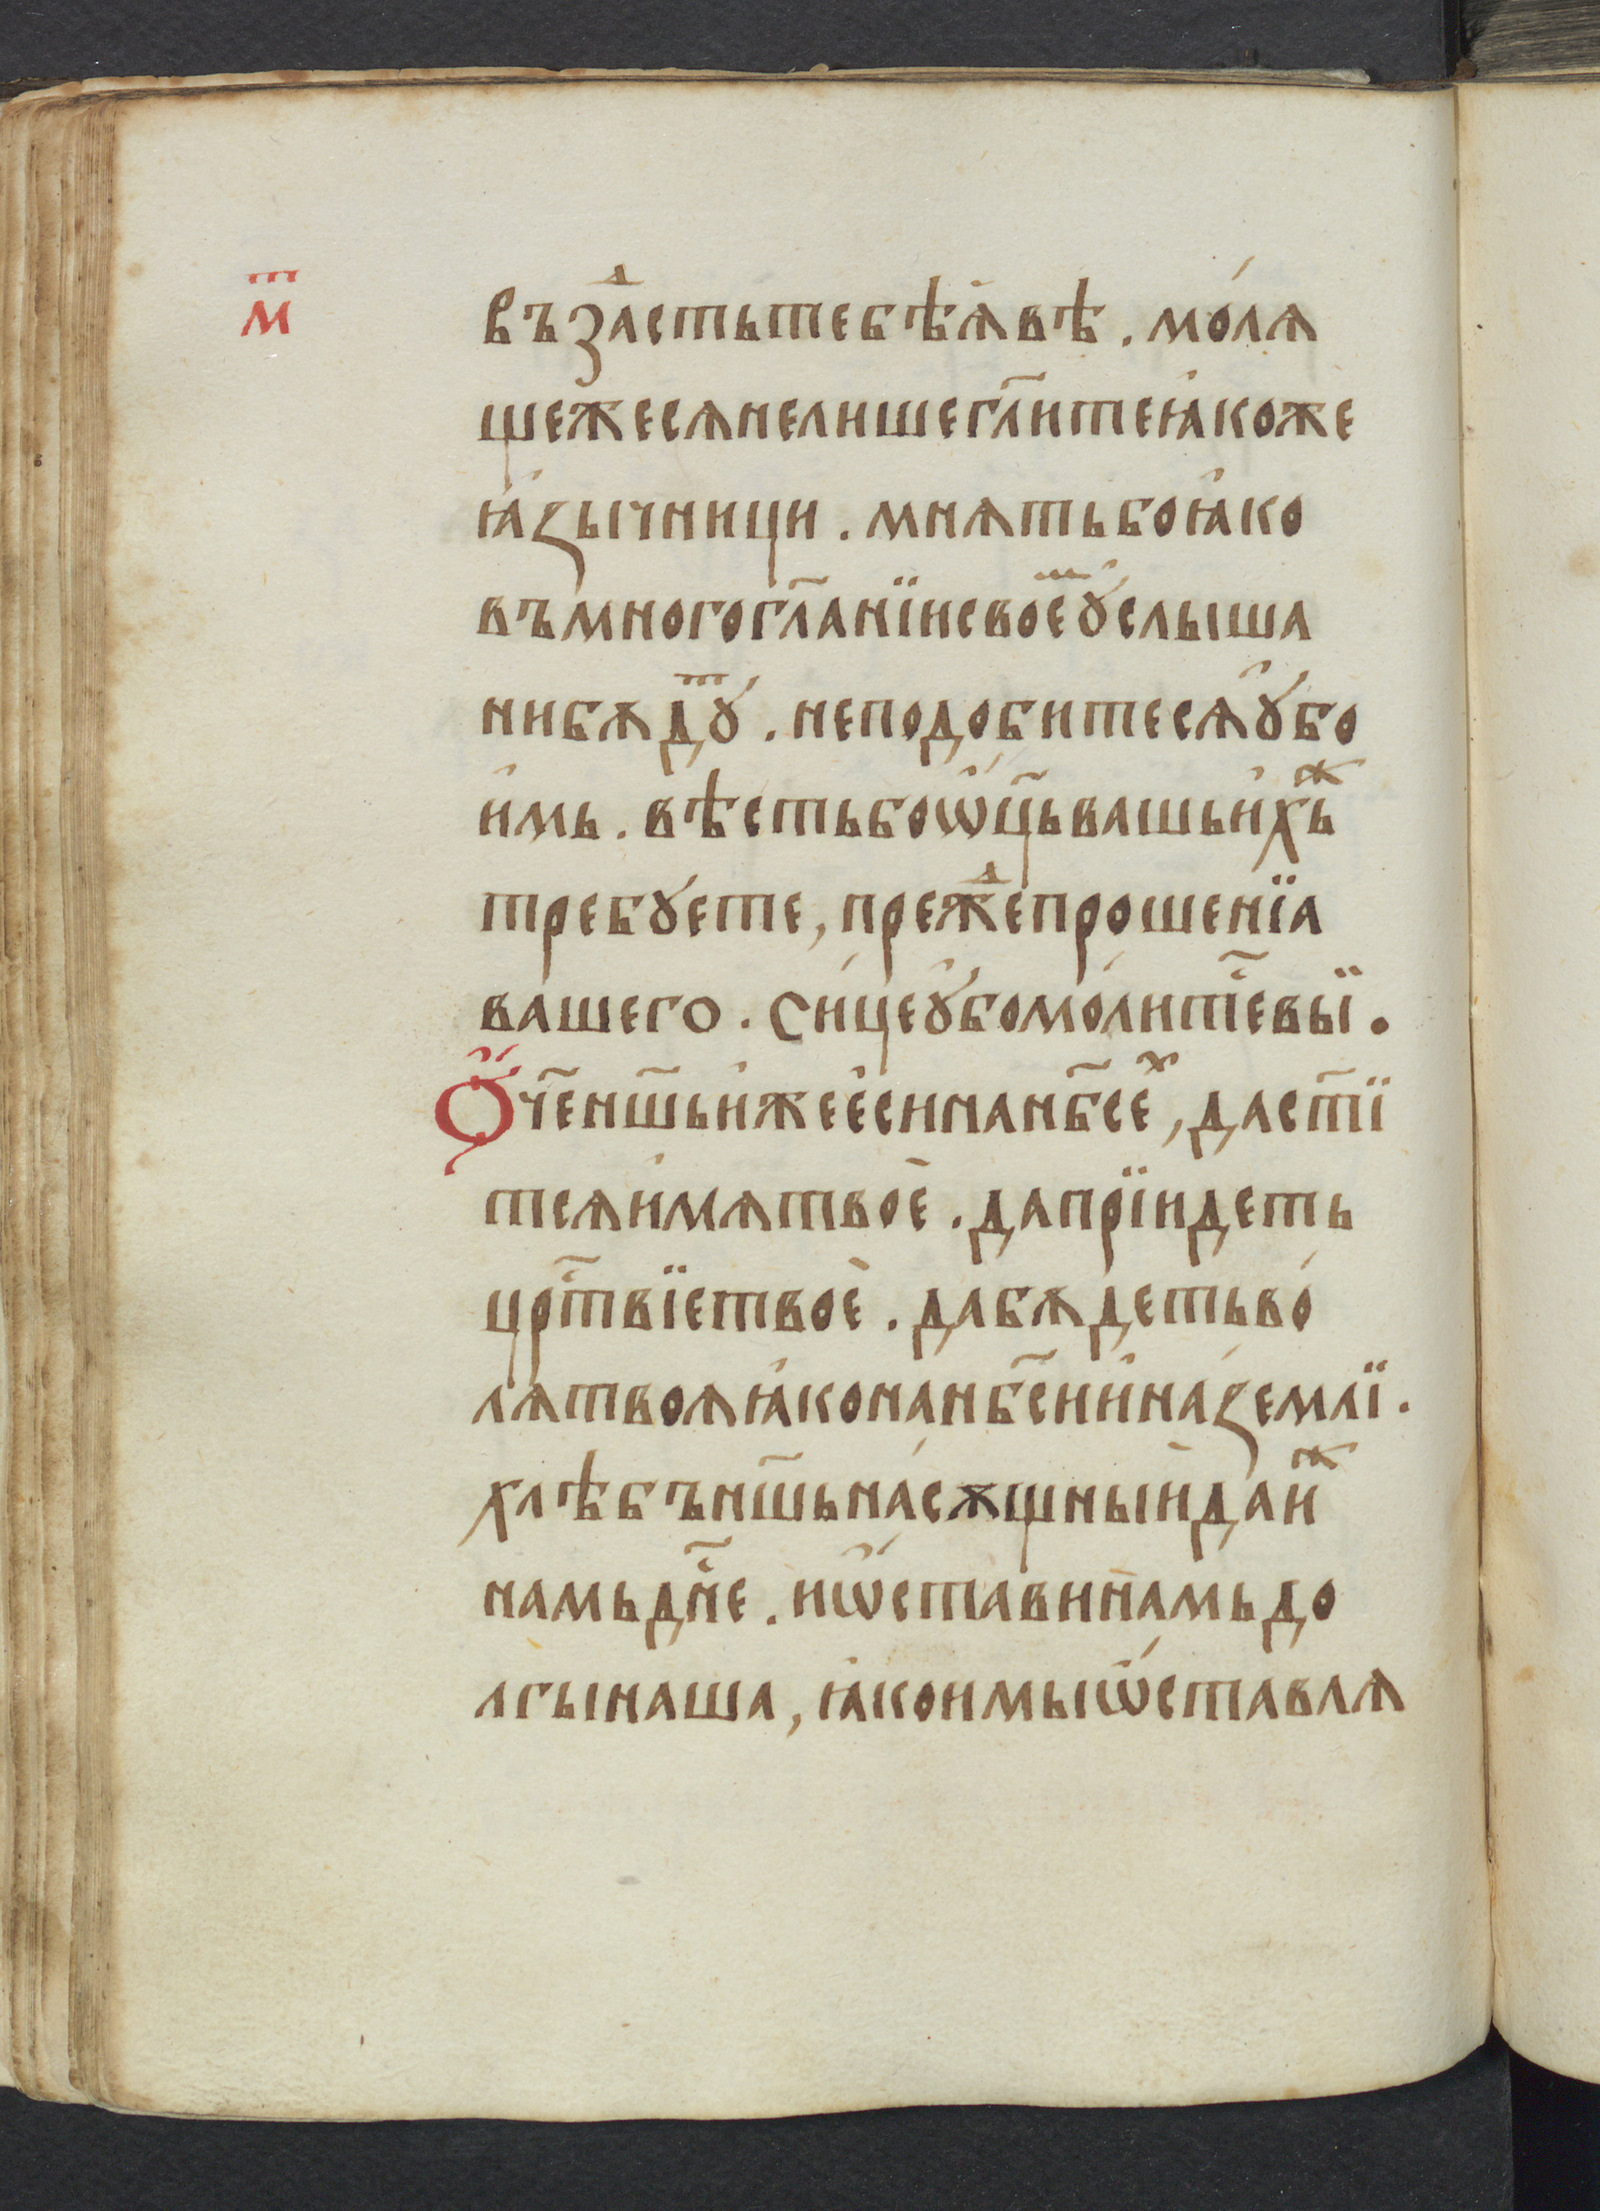 м҃
въ зⷣасть тебѣ ꙗ҆вѣ . мо́лѧ
щеже сѧ не лише гл҃ите ꙗ҆коже
ꙗ҆ꙁычници . мнѧть бо ꙗ҆ко
въ мноѓогл҃анїи свое ⷨ оу҆слыша
ни бѫдꙋⷮ . не подобите сѧ ᲂу҆бо
и҆мь . вѣсть бо ѿц҃ь вашь и҆хъⷤ
требꙋете , преⷤⷣе прошенїа
вашего . си́це ᲂу҆бо мо́литеⷭ҇ вьї .
Ѻ҆ч҃е нш҃ь и҆же е҆си на нб҃сеⷯ , да ст҃ї
тсѧ и҆мѧ твоѐ . да прїидеть
црⷭ҇твїе твоѐ . да бѫдеть во́
лѧ твоѧ ꙗ҆ко на нб҃си и҆ на́ ꙁемлї .
хлѣбъ нш҃ь на́сѫщныи даиⷤ
намь днⷭ҇е . и ѡ҆стави намь до
лгы наша , ꙗ҆ко и мы ѡ҆ставлѧ